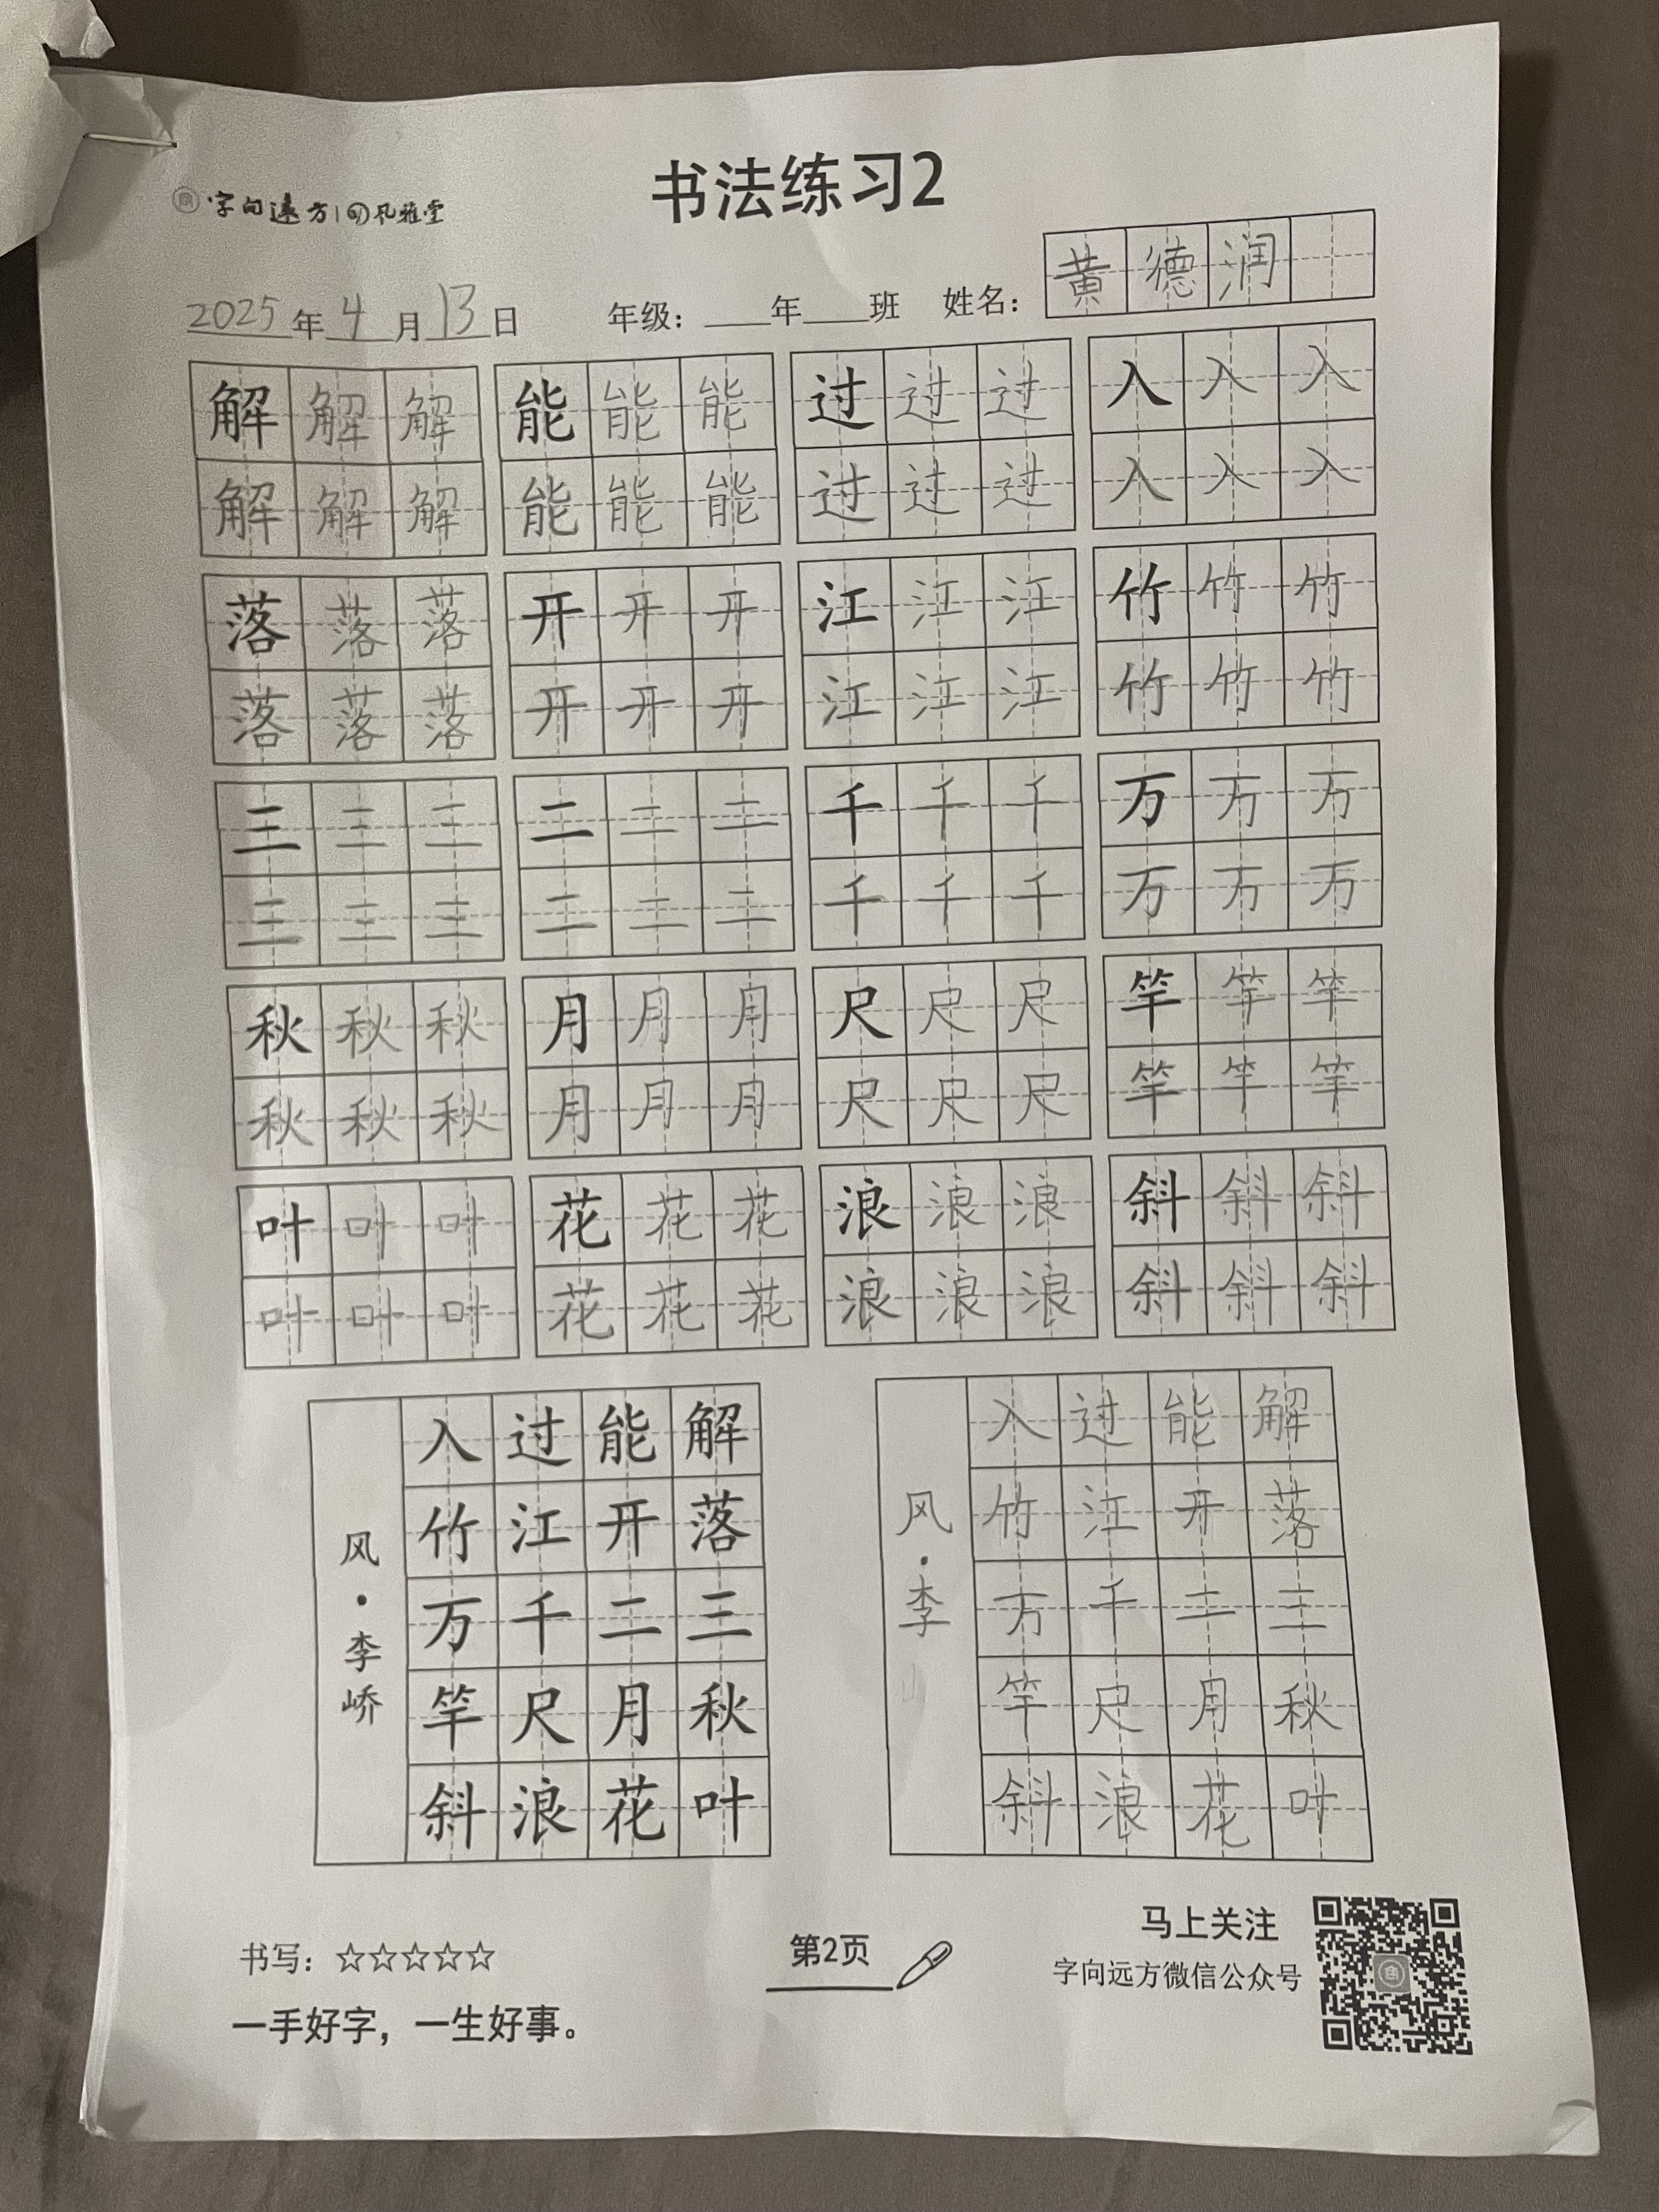 书法练习2
字向远方 | 风雅堂
2025年4月13日 年级：年班 姓名：黄德润
解解解 能能能 过过过 入入入
解解解 能能能 过过过 入入入
落落落 开开开 江江江 竹竹竹
落落落 开开开 江江江 竹竹竹
三三三 二二二 千千千 万万万
三三三 二二二 千千千 万万万
秋秋秋 月月月 尺尺尺 竿竿竿
秋秋秋 月月月 尺尺尺 竿竿竿
叶叶叶 花花花 浪浪浪 斜斜斜
叶叶叶 花花花 浪浪浪 斜斜斜
风·李峤
入过能解
竹江开落
万千二三
竿尺月秋
斜浪花叶
风·李
入过能解
竹江开落
万千二三
竿尺月秋
斜浪花叶
书写：☆☆☆☆☆
一手好字，一生好事。
第2页
马上关注
字向远方微信公众号